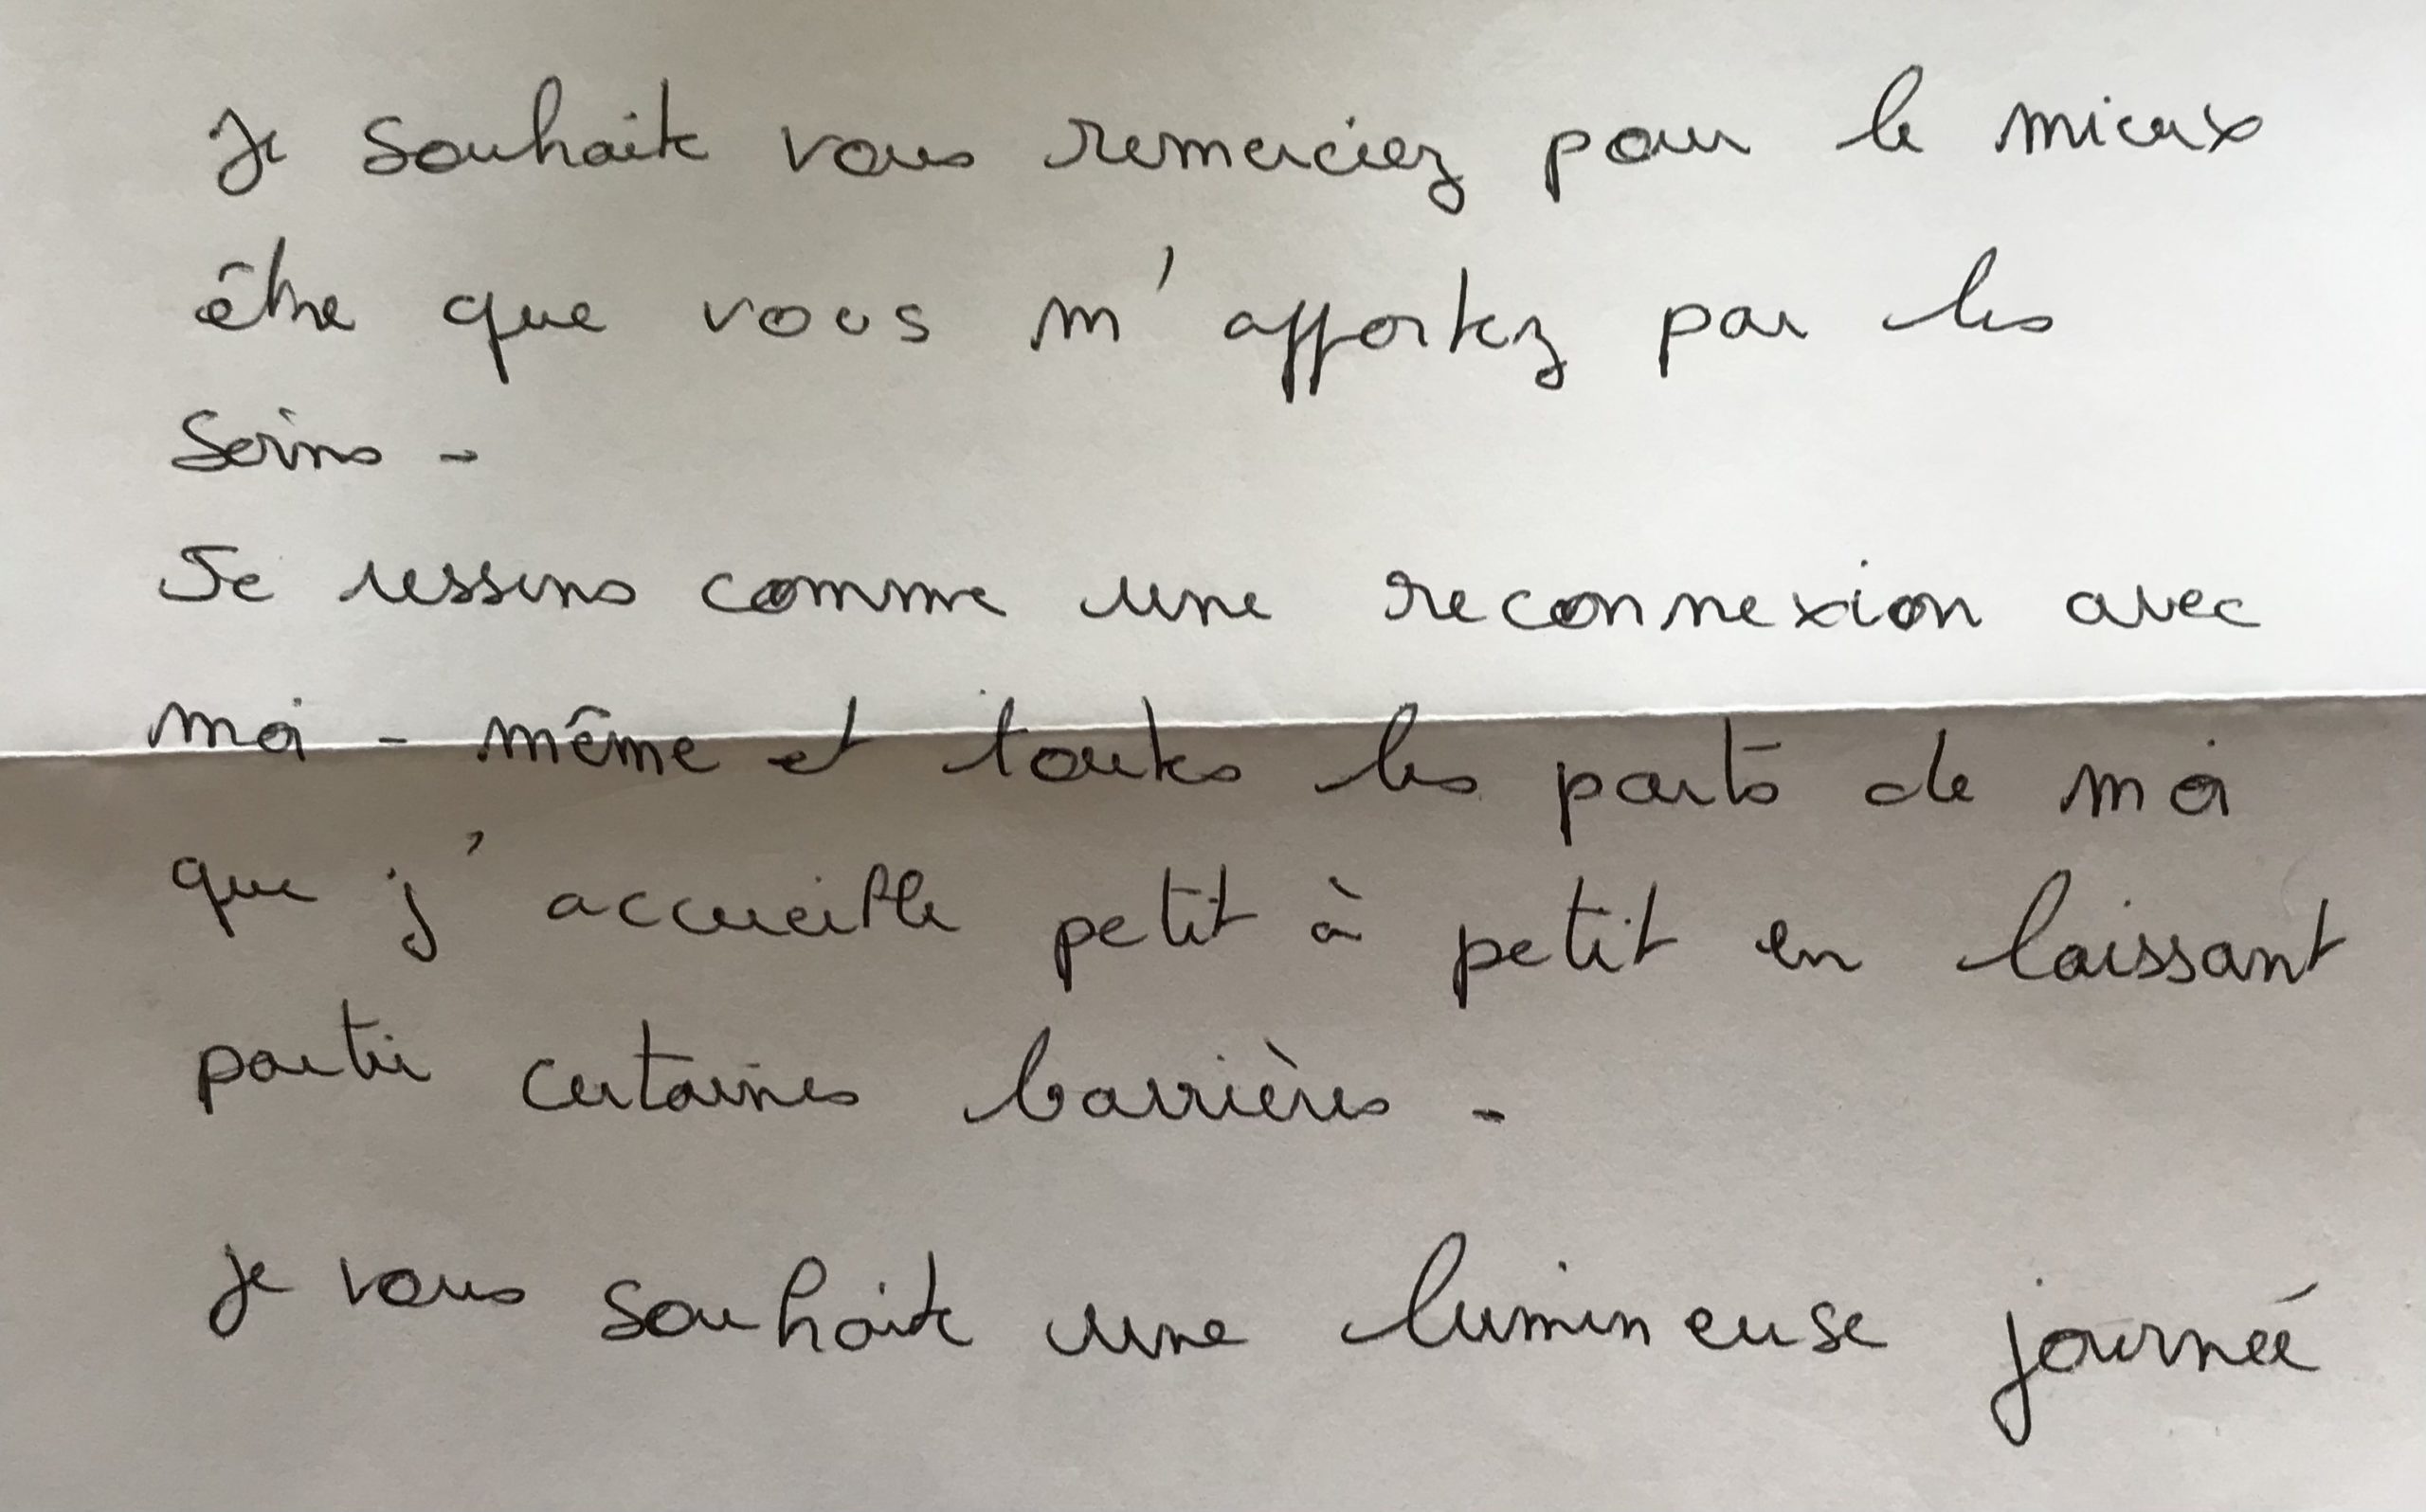 Je souhaite vous remerciez pour le mieux
être que vous m'apportez par les
soins -
Je ressens comme une reconnexion avec
moi - même et toutes les parts de moi
que j'accueille petit à petit en laissant
partir certaines barrières -
je vous souhaite une lumineuse journée